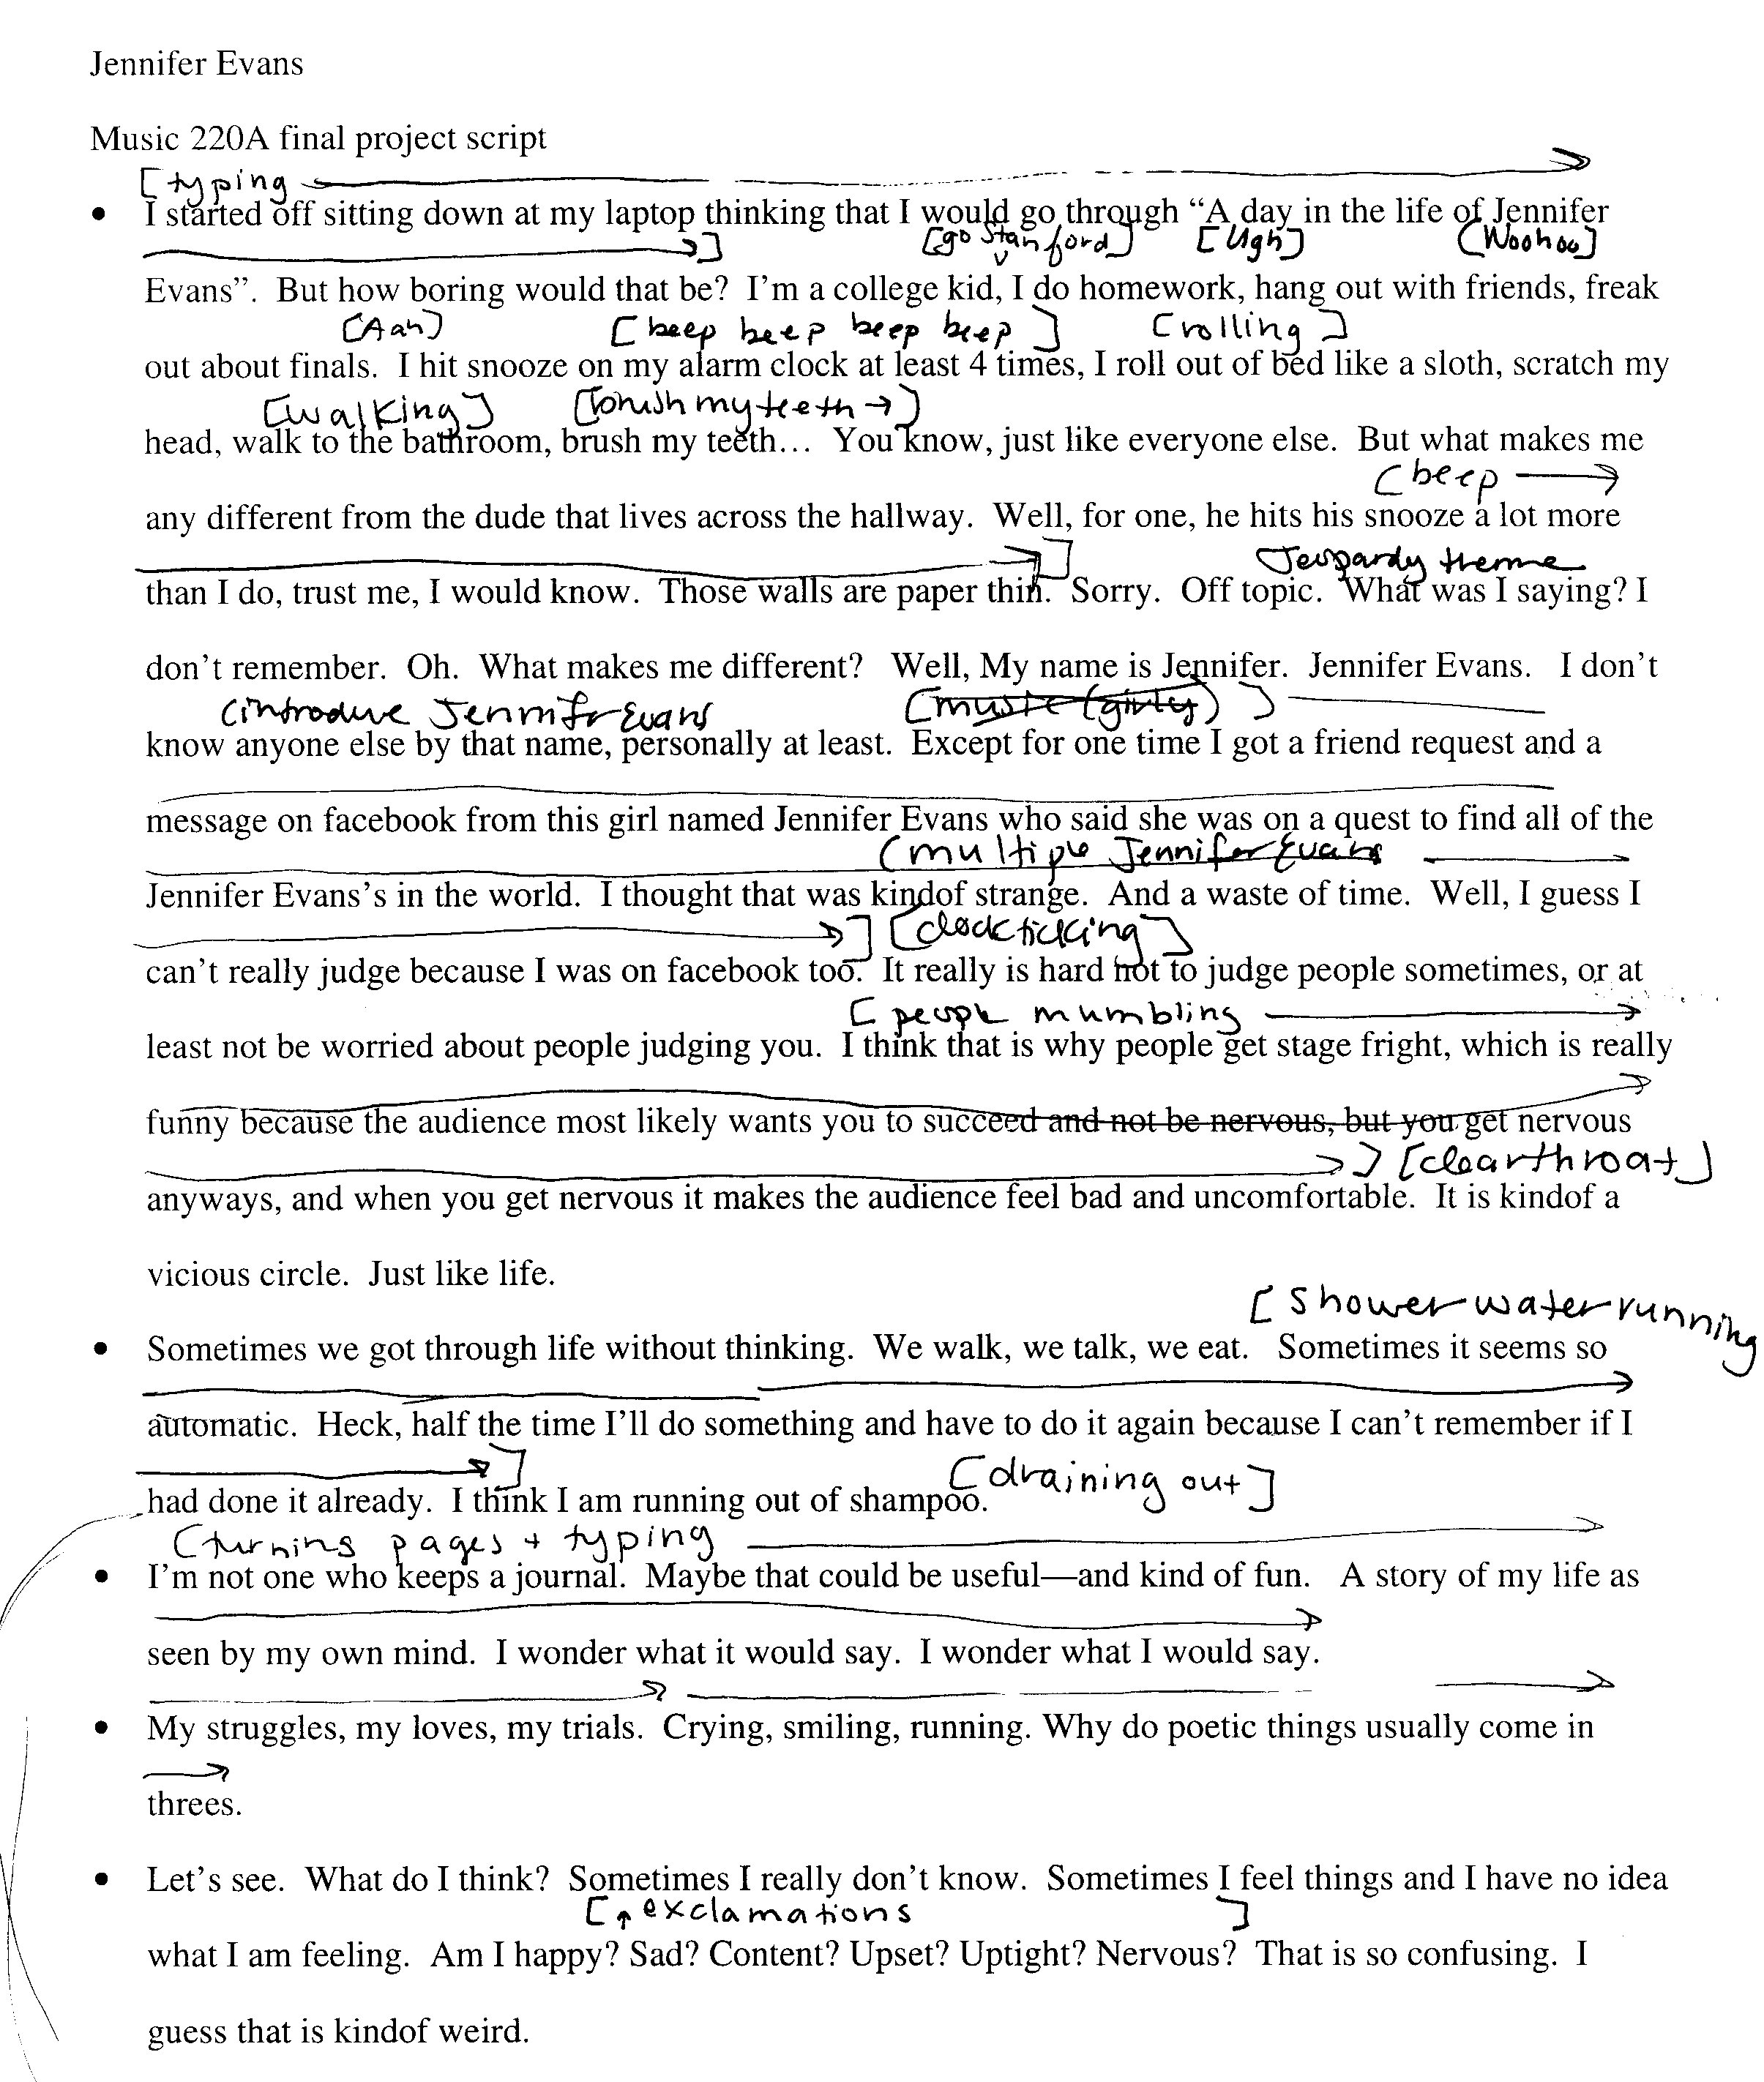 Jennifer Evans
Music 220A final project script
[typing
• I started off sitting down at my laptop thinking that I would go through “A day in the life of Jennifer
] [go Stanford] [Ugh] [Woohoo]
Evans”. But how boring would that be? I’m a college kid, I do homework, hang out with friends, freak
[Aah] [beep beep beep beep] [rolling]
out about finals. I hit snooze on my alarm clock at least 4 times, I roll out of bed like a sloth, scratch my
[walking] [brush my teeth →]
head, walk to the bathroom, brush my teeth… You know, just like everyone else. But what makes me
[beep →
any different from the dude that lives across the hallway. Well, for one, he hits his snooze a lot more
] Jeopardy theme
than I do, trust me, I would know. Those walls are paper thin. Sorry. Off topic. What was I saying? I
don’t remember. Oh. What makes me different? Well, My name is Jennifer. Jennifer Evans. I don’t
[introduce Jennifer Evans [music (girly) ]
know anyone else by that name, personally at least. Except for one time I got a friend request and a
message on facebook from this girl named Jennifer Evans who said she was on a quest to find all of the
[multiple Jennifer Evans
Jennifer Evans’s in the world. I thought that was kindof strange. And a waste of time. Well, I guess I
] [clock ticking]
can’t really judge because I was on facebook too. It really is hard not to judge people sometimes, or at
[people mumbling →
least not be worried about people judging you. I think that is why people get stage fright, which is really
funny because the audience most likely wants you to succeed and not be nervous, but you get nervous
] [clear throat]
anyways, and when you get nervous it makes the audience feel bad and uncomfortable. It is kindof a
vicious circle. Just like life.
[shower water running
• Sometimes we got through life without thinking. We walk, we talk, we eat. Sometimes it seems so
automatic. Heck, half the time I’ll do something and have to do it again because I can’t remember if I
] [draining out]
had done it already. I think I am running out of shampoo.
[turning pages + typing →
• I’m not one who keeps a journal. Maybe that could be useful—and kind of fun. A story of my life as
seen by my own mind. I wonder what it would say. I wonder what I would say.
• My struggles, my loves, my trials. Crying, smiling, running. Why do poetic things usually come in
threes.
• Let’s see. What do I think? Sometimes I really don’t know. Sometimes I feel things and I have no idea
[↑ exclamations ]
what I am feeling. Am I happy? Sad? Content? Upset? Uptight? Nervous? That is so confusing. I
guess that is kindof weird.